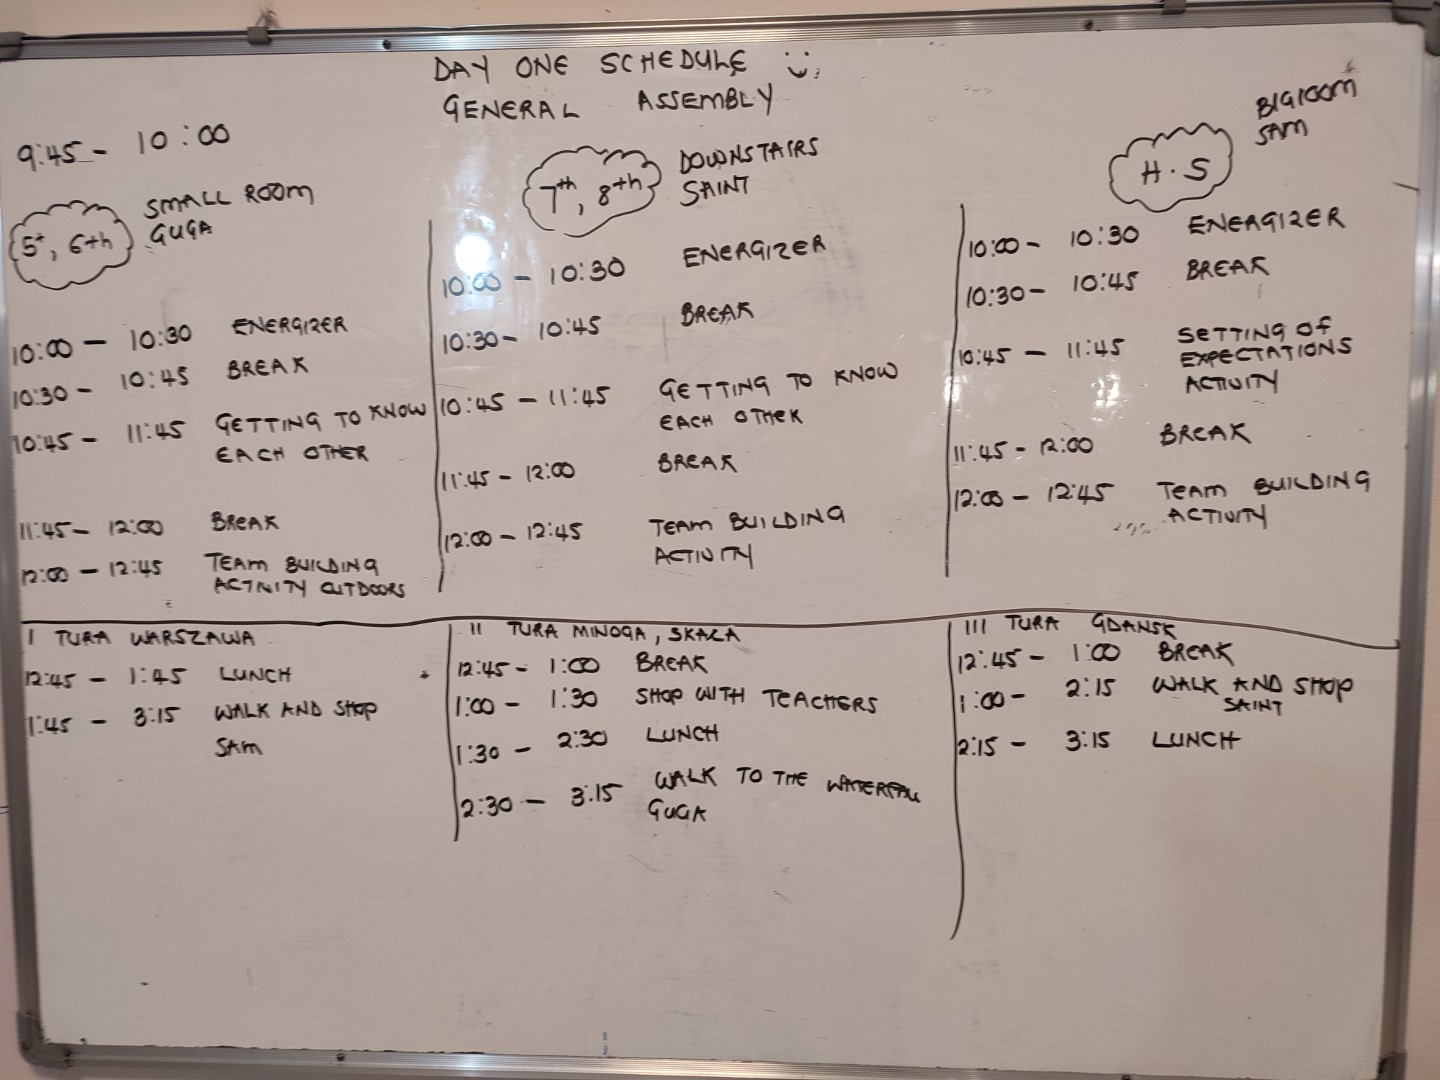 DAY ONE SCHEDULE
GENERAL ASSEMBLY
9:45 - 10:00
5t, 6th
SMALL ROOM
GUGA
10:00 - 10:30 ENERGIZER
10:30 - 10:45 BREAK
10:45 - 11:45 GETTING TO KNOW
EACH OTHER
11:45 - 12:00 BREAK
12:00 - 12:45 TEAM BUILDING
ACTIVITY OUTDOORS
7th, 8th
DOWNSTAIRS
SAINT
10:00 - 10:30 ENERGIZER
10:30 - 10:45 BREAK
10:45 - 11:45 GETTING TO KNOW
EACH OTHER
11:45 - 12:00 BREAK
12:00 - 12:45 TEAM BUILDING
ACTIVITY
H.S
BIGROOM
SAM
10:00 - 10:30 ENERGIZER
10:30 - 10:45 BREAK
10:45 - 11:45 SETTING OF
EXPECTATIONS
ACTIVITY
11:45 - 12:00 BREAK
12:00 - 12:45 TEAM BUILDING
ACTIVITY
I TURA WARSZAWA
12:45 - 1:45 LUNCH
1:45 - 3:15 WALK AND SHOP
SAM
II TURA MINOGA, SKALA
12:45 - 1:00 BREAK
1:00 - 1:30 SHOP WITH TEACHERS
1:30 - 2:30 LUNCH
2:30 - 3:15 WALK TO THE WATERFALL
GUGA
III TURA GDANSK
12:45 - 1:00 BREAK
1:00 - 2:15 WALK AND SHOP
SAINT
2:15 - 3:15 LUNCH